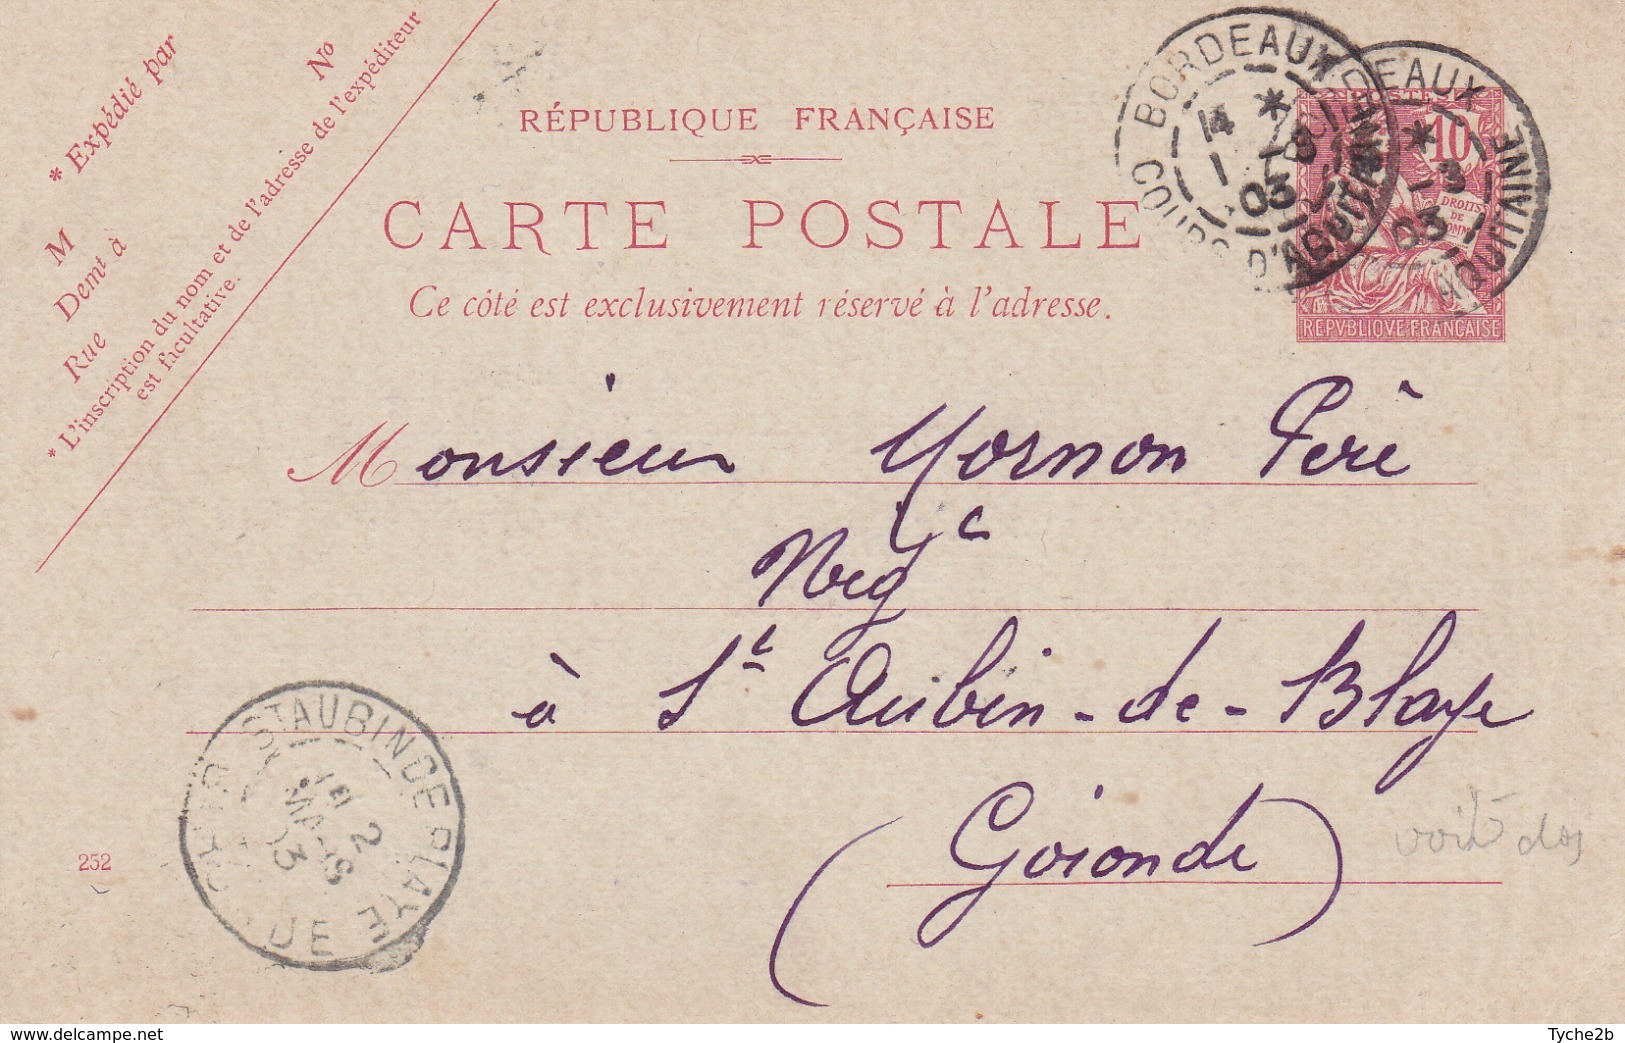 * Expédié par
M
Demt à
Rue
No
* L'inscription du nom et de l'adresse de l'expéditeur
est facultative.
RÉPUBLIQUE FRANÇAISE
CARTE POSTALE
Ce côté est exclusivement réservé à l'adresse.
BORDEAUX
COURS D'AQUITAINE
14 *
1 - 3
03
DEAUX
AQUITAINE
*
3
03
POSTES
10
DROITS
DE
L'HOMME
REPVBLIQVE FRANÇAISE
Monsieur Yornon Père
Negc
à St Aubin-de-Blaye
(Gironde)
voir dos
ST AUBIN DE BLAYE
2
MARS
03
252
www.delcampe.net
Tyche2b